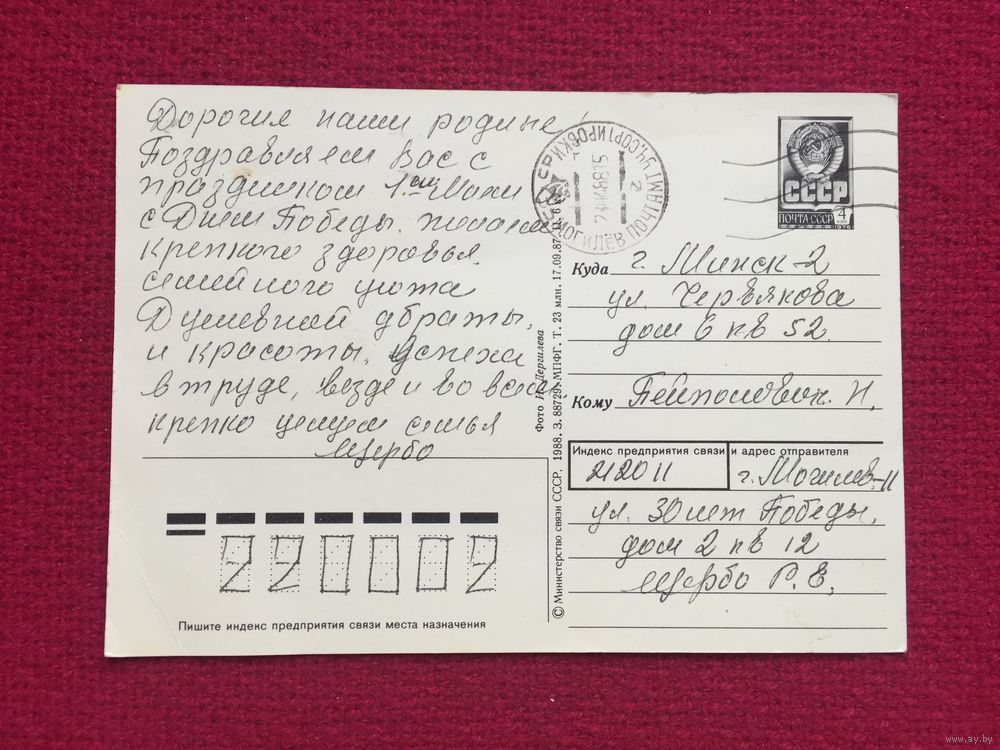 Дорогия наши родине!
Поздравляем Вас с
праздником 1ым Маяи
с Днем Победы. желаем
крепкого здоровья
семейного уюта
Душевной дбраты,
и красоты. Успеха
в труде, везде и во всем
крепко целуем семья
Щербо
СССР
ПОЧТА СССР
4
КОП
1976
МОГИЛЕВ ПОЧТАМТ УЧ. СОРТИРОВКИ
Куда г. Минск-2
ул. Червякова
дом 6 кв 52.
Кому
Индекс предприятия связи и адрес отправителя
212011 г. Могилев-11
ул. 30 лет Победы,
дом 2 кв 12
Щербо Р. Е.
Фото И. Дергилева
© Министерство связи СССР. 1988. З. 88729. МПФГ. Т. 23 млн. 17.09.87.
220002
Пишите индекс предприятия связи места назначения
www.ay.by